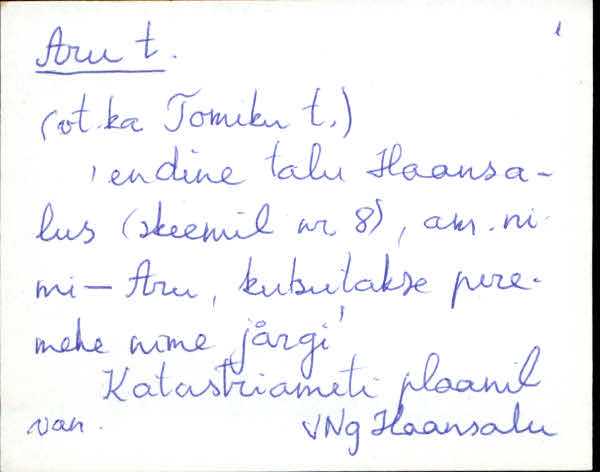 Aru t. 1
(vt. ka Tomiku t.)
'endine talu Haansa-
lus (skeemil nr 8), am. ni-
mi – Aru, kutsutakse pere-
mehe nime järgi'
Katastriameti plaanil
van. VNg Haansalu